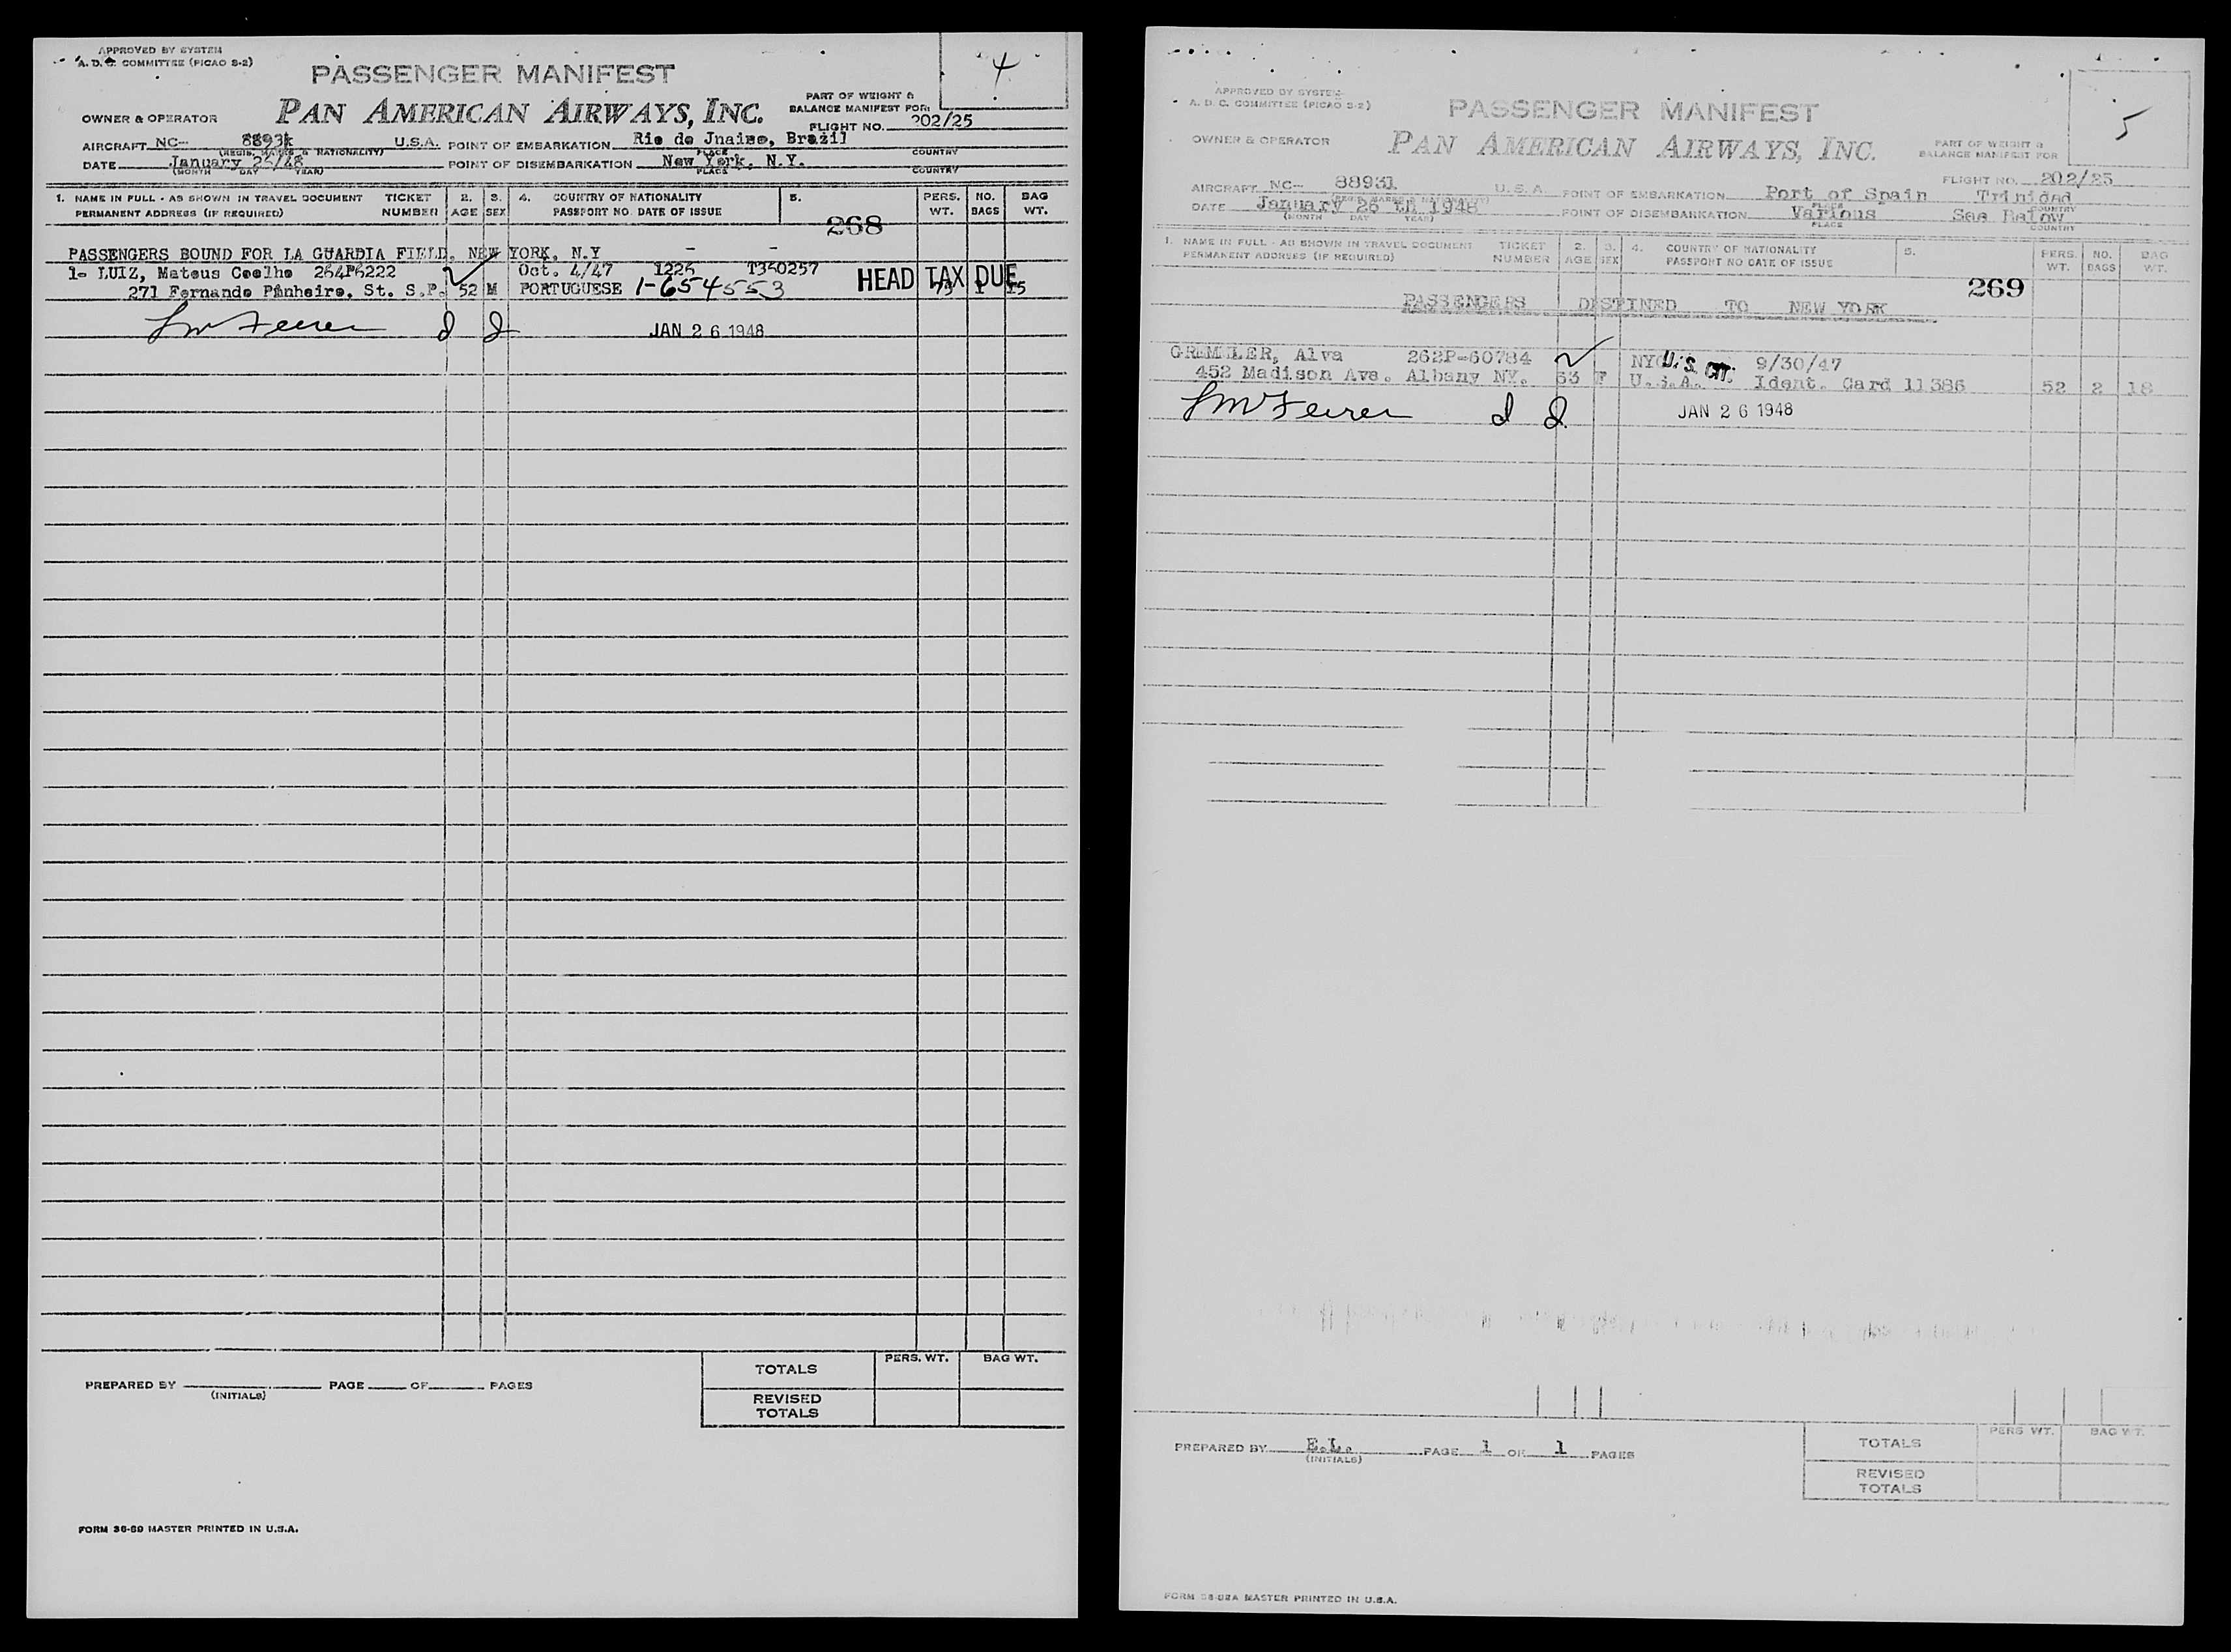 APPROVED BY SYSTEM
A. D. C. COMMITTEE (PICAO S-2)
4
PASSENGER MANIFEST
PART OF WEIGHT &
BALANCE MANIFEST FOR:
OWNER & OPERATOR PAN AMERICAN AIRWAYS, INC.
FLIGHT NO. 202/25
AIRCRAFT NC- 88931 U.S.A. POINT OF EMBARKATION Rio de Jnaino, Brazil
(REGIS. MARKS & NATIONALITY) PLACE COUNTRY
DATE January 25/48 POINT OF DISEMBARKATION New York. N.Y.
(MONTH DAY YEAR) PLACE COUNTRY
1. NAME IN FULL - AS SHOWN IN TRAVEL DOCUMENT TICKET 2. 3. 4. COUNTRY OF NATIONALITY 5. PERS. NO. BAG
PERMANENT ADDRESS (IF REQUIRED) NUMBER AGE SEX PASSPORT NO. DATE OF ISSUE WT. BAGS WT.
268
PASSENGERS BOUND FOR LA GUARDIA FIELD, NEW YORK, N.Y - -
1- LUIZ, Mateus Coelho 264P6222 Oct. 4/47 1226 T360257 HEAD TAX DUE
271 Fernando Pinheiro, St. S.P. 52 M PORTUGUESE 1-654553 73 1 15
JAN 26 1948
PREPARED BY PAGE OF PAGES
(INITIALS)
TOTALS PERS. WT. BAG WT.
REVISED
TOTALS
FORM 36-89 MASTER PRINTED IN U.S.A.
APPROVED BY SYSTEM
A. D. C. COMMITTEE (PICAO S-2)
5
PASSENGER MANIFEST
OWNER & OPERATOR PAN AMERICAN AIRWAYS, INC.
PART OF WEIGHT &
BALANCE MANIFEST FOR
FLIGHT NO. 202/25
AIRCRAFT NC- 88931 U.S.A. POINT OF EMBARKATION Port of Spain Trinidad
(REGIS. MARKS & NATIONALITY) PLACE COUNTRY
DATE January 26 th 1948 POINT OF DISEMBARKATION Various See Below
(MONTH DAY YEAR) PLACE COUNTRY
1. NAME IN FULL - AS SHOWN IN TRAVEL DOCUMENT TICKET 2. 3. 4. COUNTRY OF NATIONALITY 5. PERS. NO. BAG
PERMANENT ADDRESS (IF REQUIRED) NUMBER AGE SEX PASSPORT NO. DATE OF ISSUE WT. BAGS WT.
269
PASSENGERS DESTINED TO NEW YORK
Alva 262P-60784 U.S. CIT. 9/30/47
452 Madison Ave. Albany NY. 53 F U.S.A. Ident. Card 11386 52 2 18
JAN 26 1948
PREPARED BY E.L. PAGE 1 OF 1 PAGES
(INITIALS)
TOTALS PERS WT. BAG WT.
REVISED
TOTALS
MASTER PRINTED IN U.S.A.